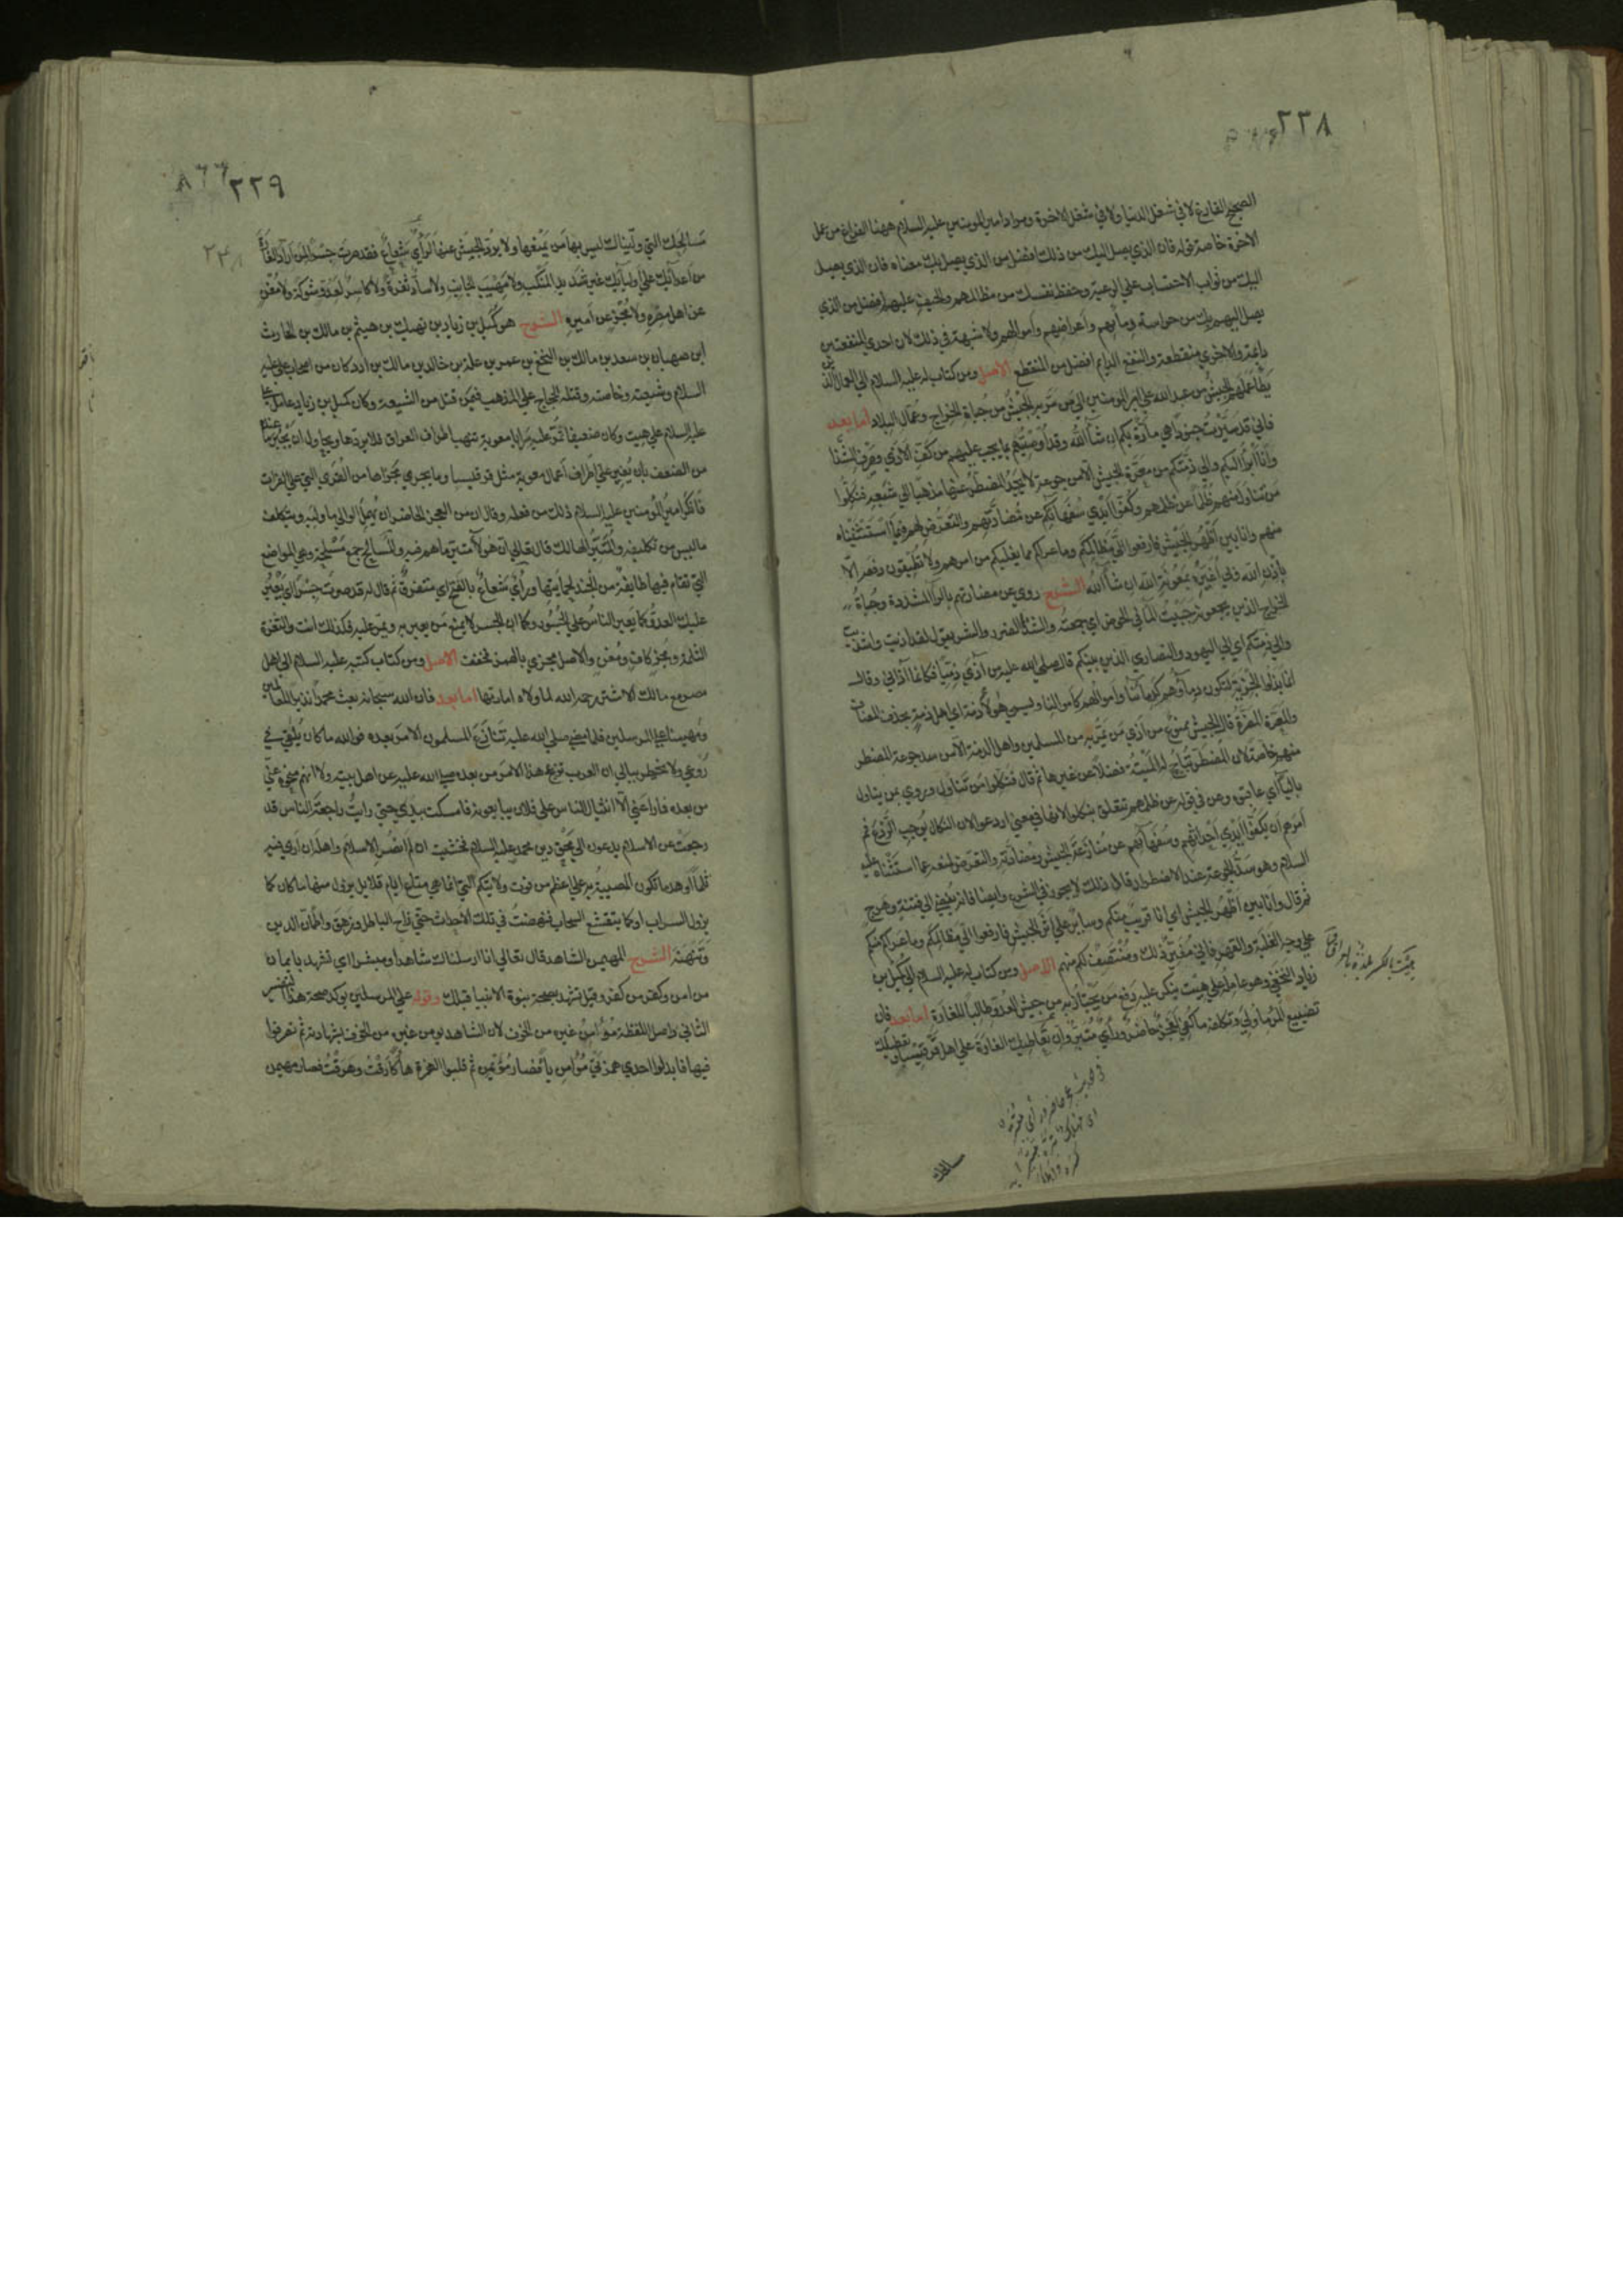 ٢٢٨
الصحيح الفارغ لا في شغل الدنيا ولا في شغل الاخرة ومراد امير المومنين عليه السلام ههنا الفراغ من عمل
الاخرة خاصة قوله فان الذي يصل اليك من ذلك افضل من الذي يصل بك معناه فان الذي يصل
اليك من ثواب الاحتساب علي الرعية وحفظ نفسك من مظالمهم والحيف عليهم افضل من الذي
يصل اليهم بك من حراسة دمايهم واعراضهم واموالهم ولا شبهة في ذلك لان احدي المنفعتين
دايمة والاخري منقطعة والنفع الدايم افضل من المنقطع الاصل ومن كتاب له عليه السلام الي العمال الذين
يطأ عملهم الجيش من عبد الله علي امير المومنين الي من مر به الجيش من جباة الخراج وعمال البلاد اما بعد
فاني قد سيرت جنودا هي مارة بكم ان شاء الله وقد اوصيتهم بما يجب عليهم من كف الاذي وصرف الشذا
وانا ابرأ اليكم والي ذمتكم من معرة الجيش الا من جوعة المضطر لا يجد عنها مذهبا الي شبعه فنكلوا
من تناول منهم ظلما عن ظلمهم وكفوا ايدي سفهايكم عن مضادتهم والتعرض لهم فيما استثنيناه
منهم وانا بين اظهر الجيش فارفعوا الي مظالمكم وما عراكم مما يغلبكم من امرهم ولا تطيقون دفعه الا
بالله وبي اغيره بمعونة الله ان شاء الله الشرح روي عن مضارتهم بالراء المشددة وجباة
الخراج الذين يجمعونه جبيت الماء في الحوض اي جمعته والشذا الضرر والشر يقول لقد اذيت واشذيت
والي ذمتكم اي الي اليهود والنصاري الذين بينكم قال صلي الله عليه من آذي ذميا فكانما آذاني وقال
انما بذلوا الجزية لتكون دماؤهم كدمائنا واموالهم كاموالنا ويسمي هولاء ذمة اي اهل ذمة بحذف المضاف
والمعرة المضرة قال الجيش ممنوع من اذي من يمر به من المسلمين واهل الذمة الا من سد جوعة المضطر
منهم خاصة لان المضطر تباح له الميتة فضلا عن غيرها ثم قال فنكلوا من تناول وروي بمن تناول
بالباء اي عاقبوه وعن في قوله عن ظلمهم تتعلق بنكلوا لانها في معني اردعوا لان النكال يوجب الردع ثم
امرهم ان يكفوا ايدي احداثهم وسفهايهم عن منازعة الجيش ومصادمته والتعرض لمنعه عما استثناه عليه
السلام وهو سد الجوعة عند الاضطرار قال ذلك لا يجوز في الشرع وايضا فانه يفضي الي فتنة وهرج
ثم قال وانا بين اظهر الجيش اي انا قريب منكم وساير علي اثر الجيش فارفعوا الي مظالمكم وما عراكم منهم
علي وجه الغلبة والقهر فاني مغير ذلك ومنتصف لكم منهم الاصل ومن كتاب له عليه السلام الي كميل بن
زياد النخعي وهو عامله علي هيت ينكر عليه دفع من يجتاز به من جيش العدو طالبا للغارة اما بعد فان
تضييع المرء ما ولي وتكلفه ما كفي لعجز حاضر ورأي متبر وان تعاطيك الغارة علي اهل قرقيسيا وتعطيلك
مسالحك
٢٢٩
مسالحك التي وليناك ليس بها من يمنعها ولا يرد الجيش عنها لرأي شعاع فقد صرت جسرا لمن اراد الغارة
من اعدائك علي اوليائك غير شديد المنكب ولا مهيب الجانب ولا ساد ثغرة ولا كاسر لعدو شوكة ولا مغن
عن اهل مصره ولا مجز عن اميره الشرح هو كميل بن زياد بن نهيك بن هيثم بن مالك بن الحارث
ابن صهبان بن سعد بن مالك بن النخع بن عمرو بن علة بن خالد بن مالك بن ادد كان من اصحاب علي عليه
السلام وشيعته وخاصته وقتله الحجاج علي المذهب فيمن قتل من الشيعة وكان كميل بن زياد عامل علي
عليه السلام علي هيت وكان ضعيفا تمر عليه سرايا معوية تنهب اطراف العراق فلا يردها ويحاول ان يجبر ما عنده
من الضعف بان يغير علي اطراف اعمال معوية مثل قرقيسا وما يجري مجراها من القري التي علي الفرات
فانكر امير المومنين عليه السلام ذلك من فعله وقال ان من العجز الحاضر ان يهمل الوالي ما وليه ويتكلف
ما ليس من تكليفه والمتبر الهالك قال تعالي ان هولاء متبر ما هم فيه والمسالح جمع مسلحة وهي المواضع
التي تقام فيها طايفة من الجند لحمايتها ورأي شعاع بالفتح اي متفرق ثم قال له قد صرت جسرا اي يعبر
عليك العدو كما يعبر الناس علي الجسور وكما ان الجسر لا يمنع من يعبر به ويمر عليه فكذلك انت والثغرة
الثلمة ومجز كاف ومغن والاصل مجزي بالهمز فخففت الاصل ومن كتاب كتبه عليه السلام الي اهل
مصر مع مالك الاشتر رحمه الله لما ولاه امارتها اما بعد فان الله سبحانه بعث محمدا نذيرا للعالمين
ومهيمنا علي المرسلين فلما مضي صلي الله عليه تنازع المسلمون الامر بعده فوالله ما كان يلقي في
روعي ولا يخطر ببالي ان العرب تزعج هذا الامر من بعده صلي الله عليه عن اهل بيته ولا انهم منحوه عني
من بعده فما راعني الا انثيال الناس علي فلان يبايعونه فامسكت بيدي حتي رايت راجعة الناس قد
رجعت عن الاسلام يدعون الي محق دين محمد عليه السلام فخشيت ان لم انصر الاسلام واهله ان اري فيه
ثلما او هدما تكون المصيبة به علي اعظم من فوت ولايتكم التي انما هي متاع ايام قلايل يزول منها ما كان كما
يزول السراب او كما يتقشع السحاب فنهضت في تلك الاحداث حتي زاح الباطل وزهق واطمأن الدين
وتنهنه الشرح المهيمن الشاهد قال تعالي انا ارسلناك شاهدا ومبشرا اي تشهد بايمان
من امن وكفر من كفر وقيل تشهد بصحة نبوة الانبيا قبلك وقوله علي المرسلين يوكد صحة هذا التفسير
الثاني واصل اللفظة من آمن غيره من الخوف لان الشاهد يومن غيره من الخوف بشهادته ثم تصرفوا
فيها فابدلوا احدي همزتي مؤامن ياء فصار مؤيمن ثم قلبوا الهمزة هاء كارقت وهرقت فصار مهيمن